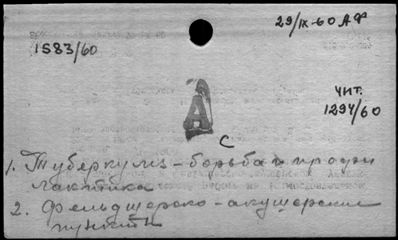 29/IX-60 АФ
1583/60
А
чит.
1294/60
с
1. Туберкулез – борьба и профи
лактика
2. Фельдшерско – акушерские
пункты